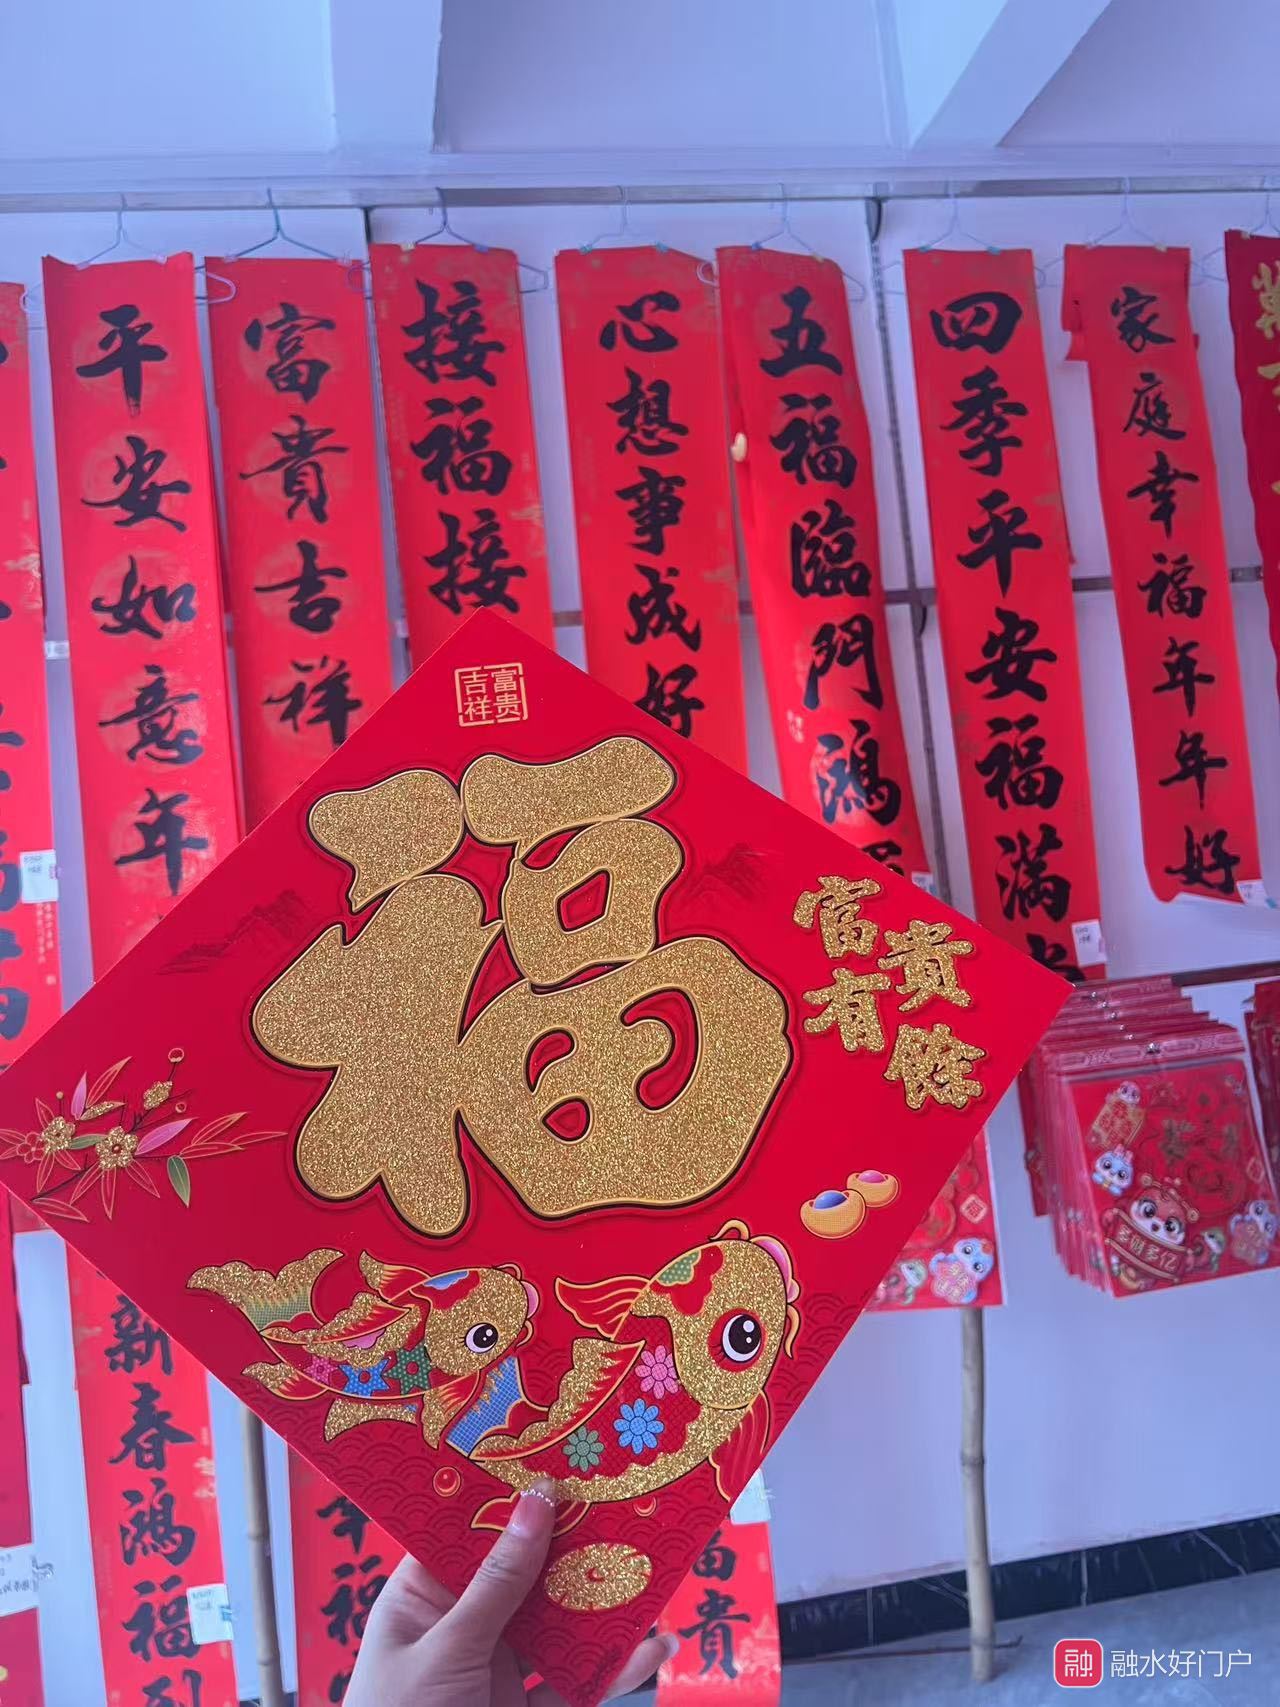 平安如意年
富貴吉祥
接福接
心想事成好
五福臨門鴻
四季平安福滿
家庭幸福年年好
富贵
吉祥
福
富貴
有餘
新春鴻福到
幸福
富貴
多财多亿
融 融水好门户